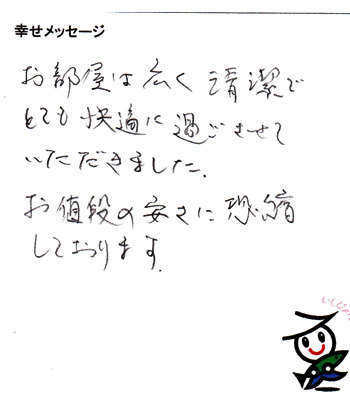 幸せメッセージ
お部屋は広く清潔で
とても快適に過ごさせて
いただきました.
お値段の安さに恐縮
しております.